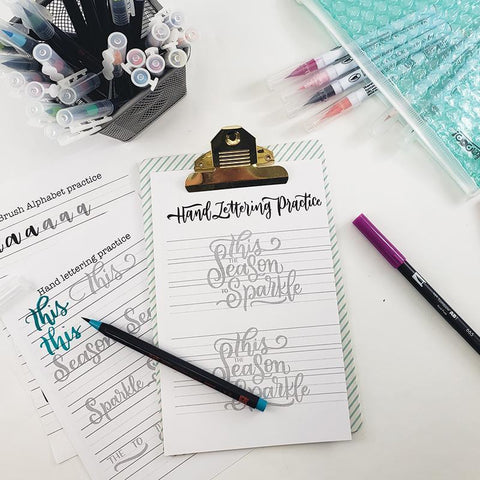 Brush Alphabet practice
aaaaaa
Hand lettering practice
this This
this
Season
Sparkle
THE TO
Hand Lettering Practice
This
THE
Season
TO
Sparkle
This
THE
Season
TO
Sparkle